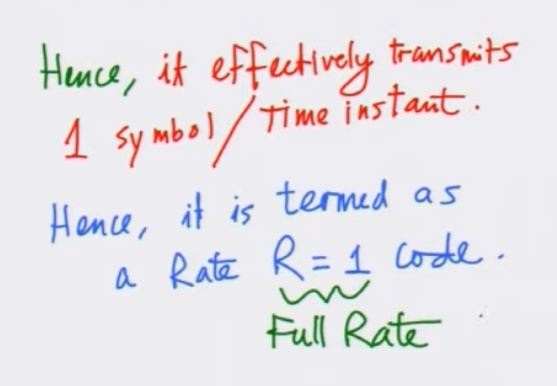 Hence, it effectively transmits
1 symbol/Time instant.
Hence, it is termed as
a Rate R = 1 code.
Full Rate